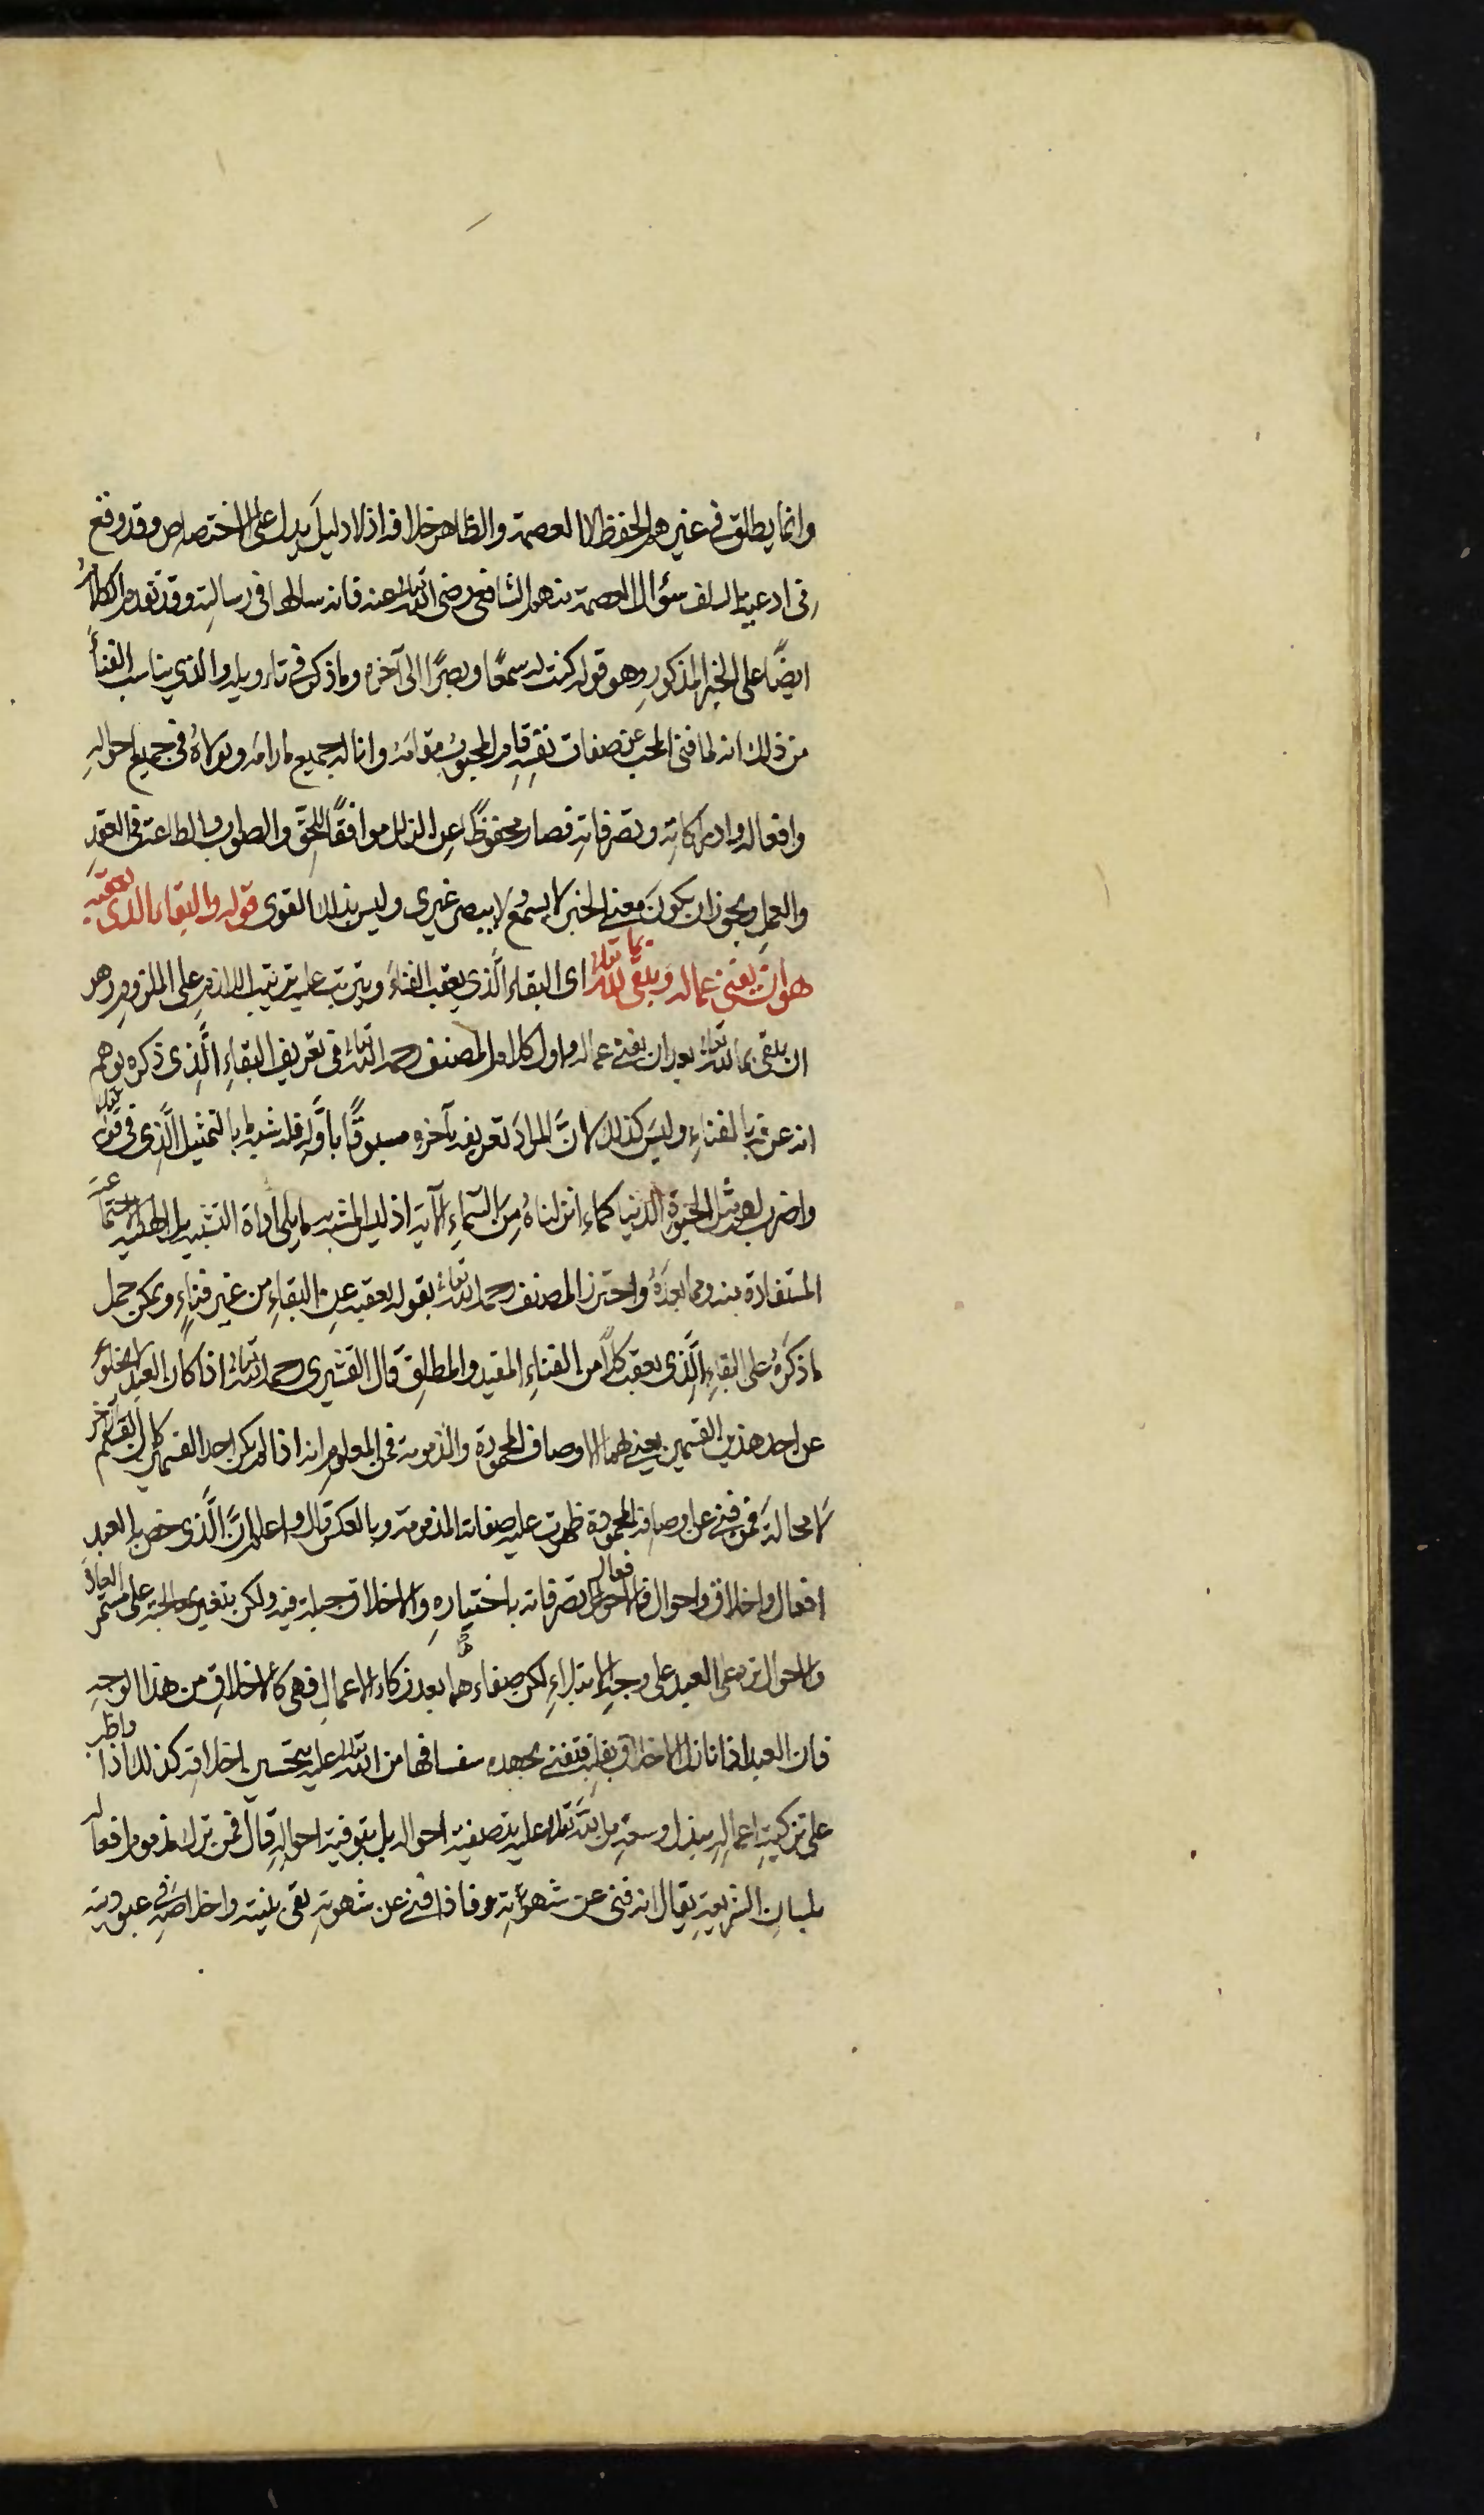 وانما يطلق في غيرهم الحفظ لا العصمة والظاهر خلافه اذ لا دليل يدل على الاختصاص وقد وقع
في ادعية السلف سؤال العصمة منهم الشافعي رضى الله تعالى عنه فانه سالها في رسالته وقد تقدم الكلام
ايضًا على الخبر المذكور وهو قوله كنت له سمعًا وبصرًا الى آخره وما ذكر في تاويله والذي يناسب الفناء
من ذلك انه لما فنى المحب عن صفات نفسه قام المحبوب مقامه واناله جميع مرامه وتولاه في جميع احواله
وافعاله وادراكاته وتصرفاته فصار محفوظًا عن الزلل موافقًا للحق والصواب والطاعة في القول
والعمل ويجوز ان يكون معنى الخبر لا يسمع ولا يبصر غيري وليس بذلك القوى قوله والبقاء الذي يعقبه
هو ان يفنى عما له ويبقى بما لله تعالى اى البقاء الذي يعقب الفناء ويترتب عليه ترتيب اللازم على الملزوم هو
ان يبقى بما لله تعالى بعد ان يفنى عما له واول كلام المصنف رحمه الله تعالى في تعريف البقاء الذي ذكره يوهم
انه عرفه بالفناء وليس كذلك لان المراد تعريفه بآخره مسبوقًا باوله فله شبه بالتمثيل الذي في قوله تعالى
واضرب لهم مثل الحيوة الدنيا كماء انزلناه من السماء الآية اذ ليس المشبه به ما يلى اداة التشبيه بل الهيئة الاجتماعية
المستفادة منه ومما بعده واحترز المصنف رحمه الله تعالى بقوله يعقبه عن البقاء من غير فناء ويمكن حمل
ما ذكره على البقاء الذي يعقب كلًا من الفناء المقيد والمطلق قال القشيرى رحمه الله تعالى اذا كان العبد لا يخلو
عن احد هذين القسمين يعنى بهما الاوصاف المحمودة والمذمومة فمن المعلوم انه اذا لم يكن احد القسمين كان القسم الآخر
لا محالة فمن فنى عن اوصافه المحمودة ظهرت عليه صفاته المذمومة وبالعكس قال واعلم ان الذي خص به العبد
افعال واخلاق واحوال فالافعال تصرفاته باختياره والاخلاق جبلة فيه ولكن يتغير بمعالجته على مستمر العادة
والاحوال ترد على العبد على وجه الابتداء لكن صفاءها بعد زكاء الاعمال فهى كالاخلاق من هذا الوجه
فان العبد اذا نازل الاخلاق بقلبه فتفنى بجهده سفسافها من الله تعالى عليه بتحسين اخلاقه كذلك اذا واظب
على تزكية اعماله ببذل وسعه من الله تعالى عليه بتصفية احواله بل بتوفية احواله قال فمن ترك مذموم افعاله
بلسان الشريعة يقال انه فنى عن شهواته فاذا فنى عن شهوته بقى بنيته واخلاصه في عبوديته